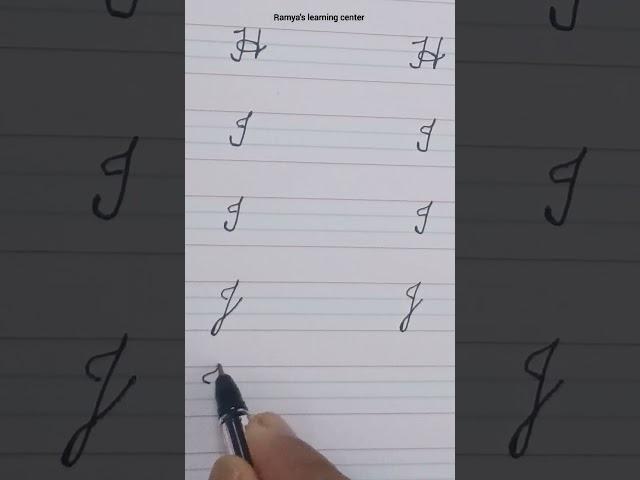 Ramya's learning center
H H
I I
I I
J J